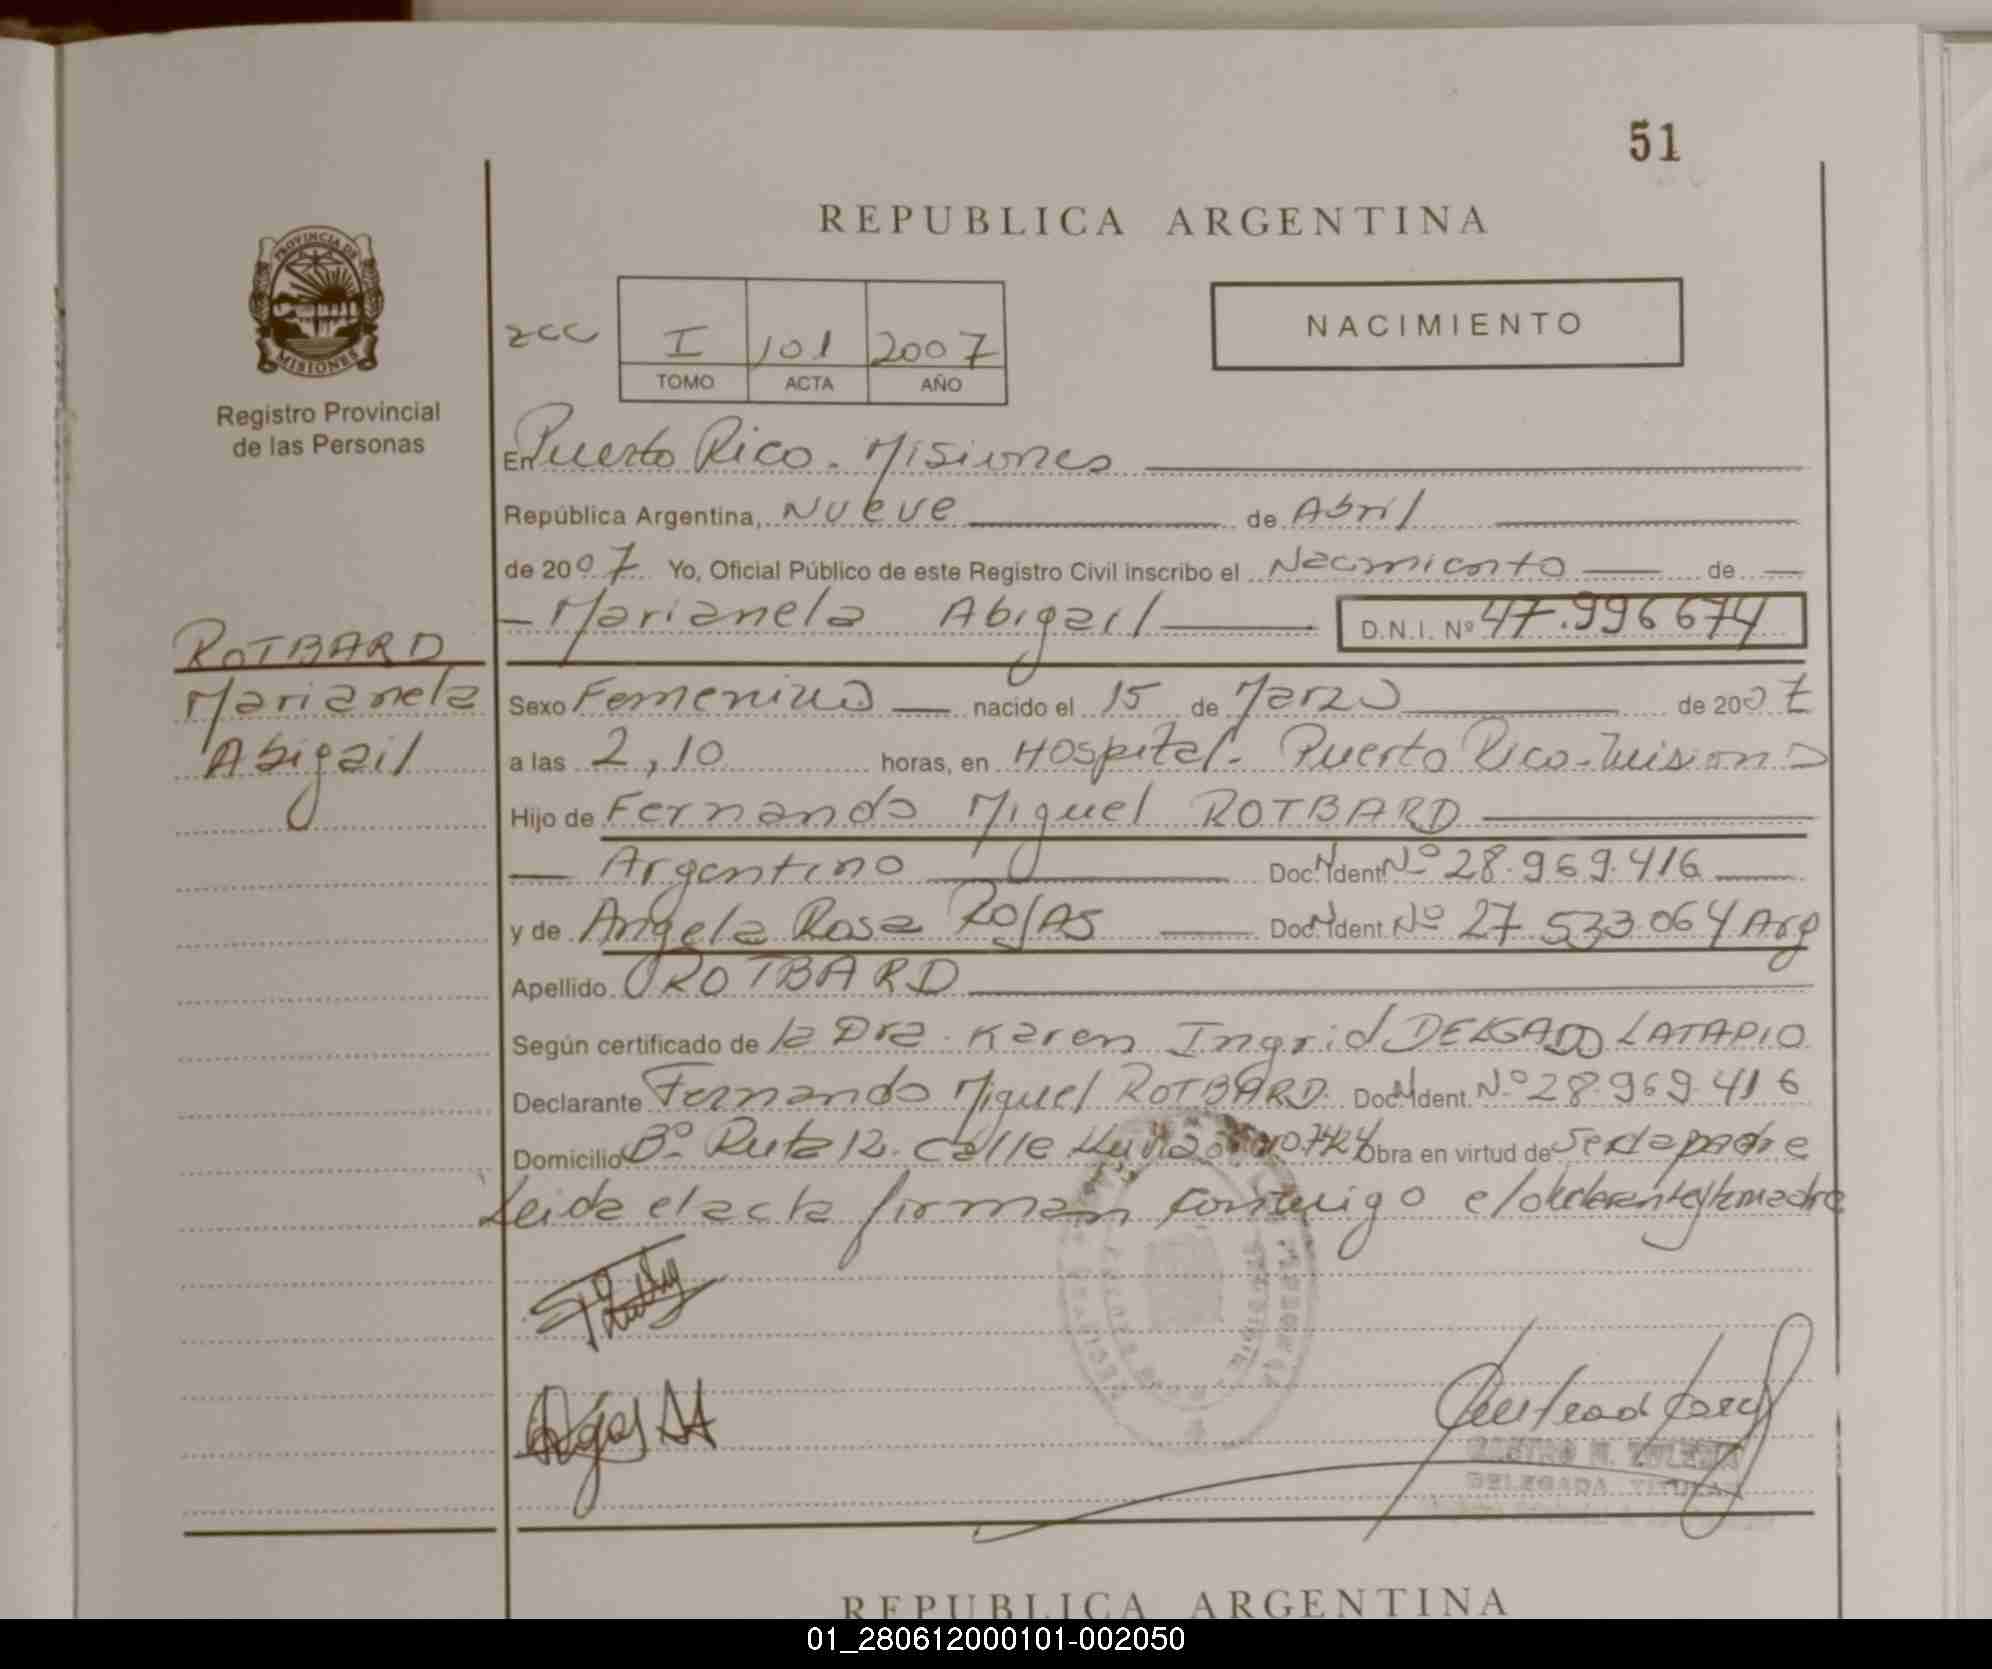 51
REPUBLICA ARGENTINA
PROVINCIA DE
MISIONES
Registro Provincial
de las Personas
zcc I 101 2007
TOMO ACTA AÑO
NACIMIENTO
En Puerto Rico. Misiones
República Argentina, Nueve de Abril
de 2007 Yo, Oficial Público de este Registro Civil inscribo el Nacimiento de
Marianela Abigail D.N.I. Nº 47.996674
ROTBARD
Marianela
Abigail
Sexo Femenino nacido el 15 de Marzo de 2007
a las 2,10 horas, en Hospital - Puerto Rico - Misiones
Hijo de Fernando Miguel ROTBARD
Argentino Doc. N Ident. Nº 28.969.416
y de Angela Rosa ROJAS Doc. N Ident. Nº 27 533.064 Arg
Apellido ROTBARD
Según certificado de la Dra. Karen Ingrid DELGADO LATAPIO
Declarante Fernando Miguel ROTBARD. Doc. N Ident. Nº 28.969.416
Domicilio Bº Ruta 12. Calle Obra en virtud de ser la padre
Leida el acta firman conmigo el declarante y la madre
Rojas AA
CASTRO M. ZULEMA
DELEGADA TITULAR
REPUBLICA ARGENTINA
01_280612000101-002050